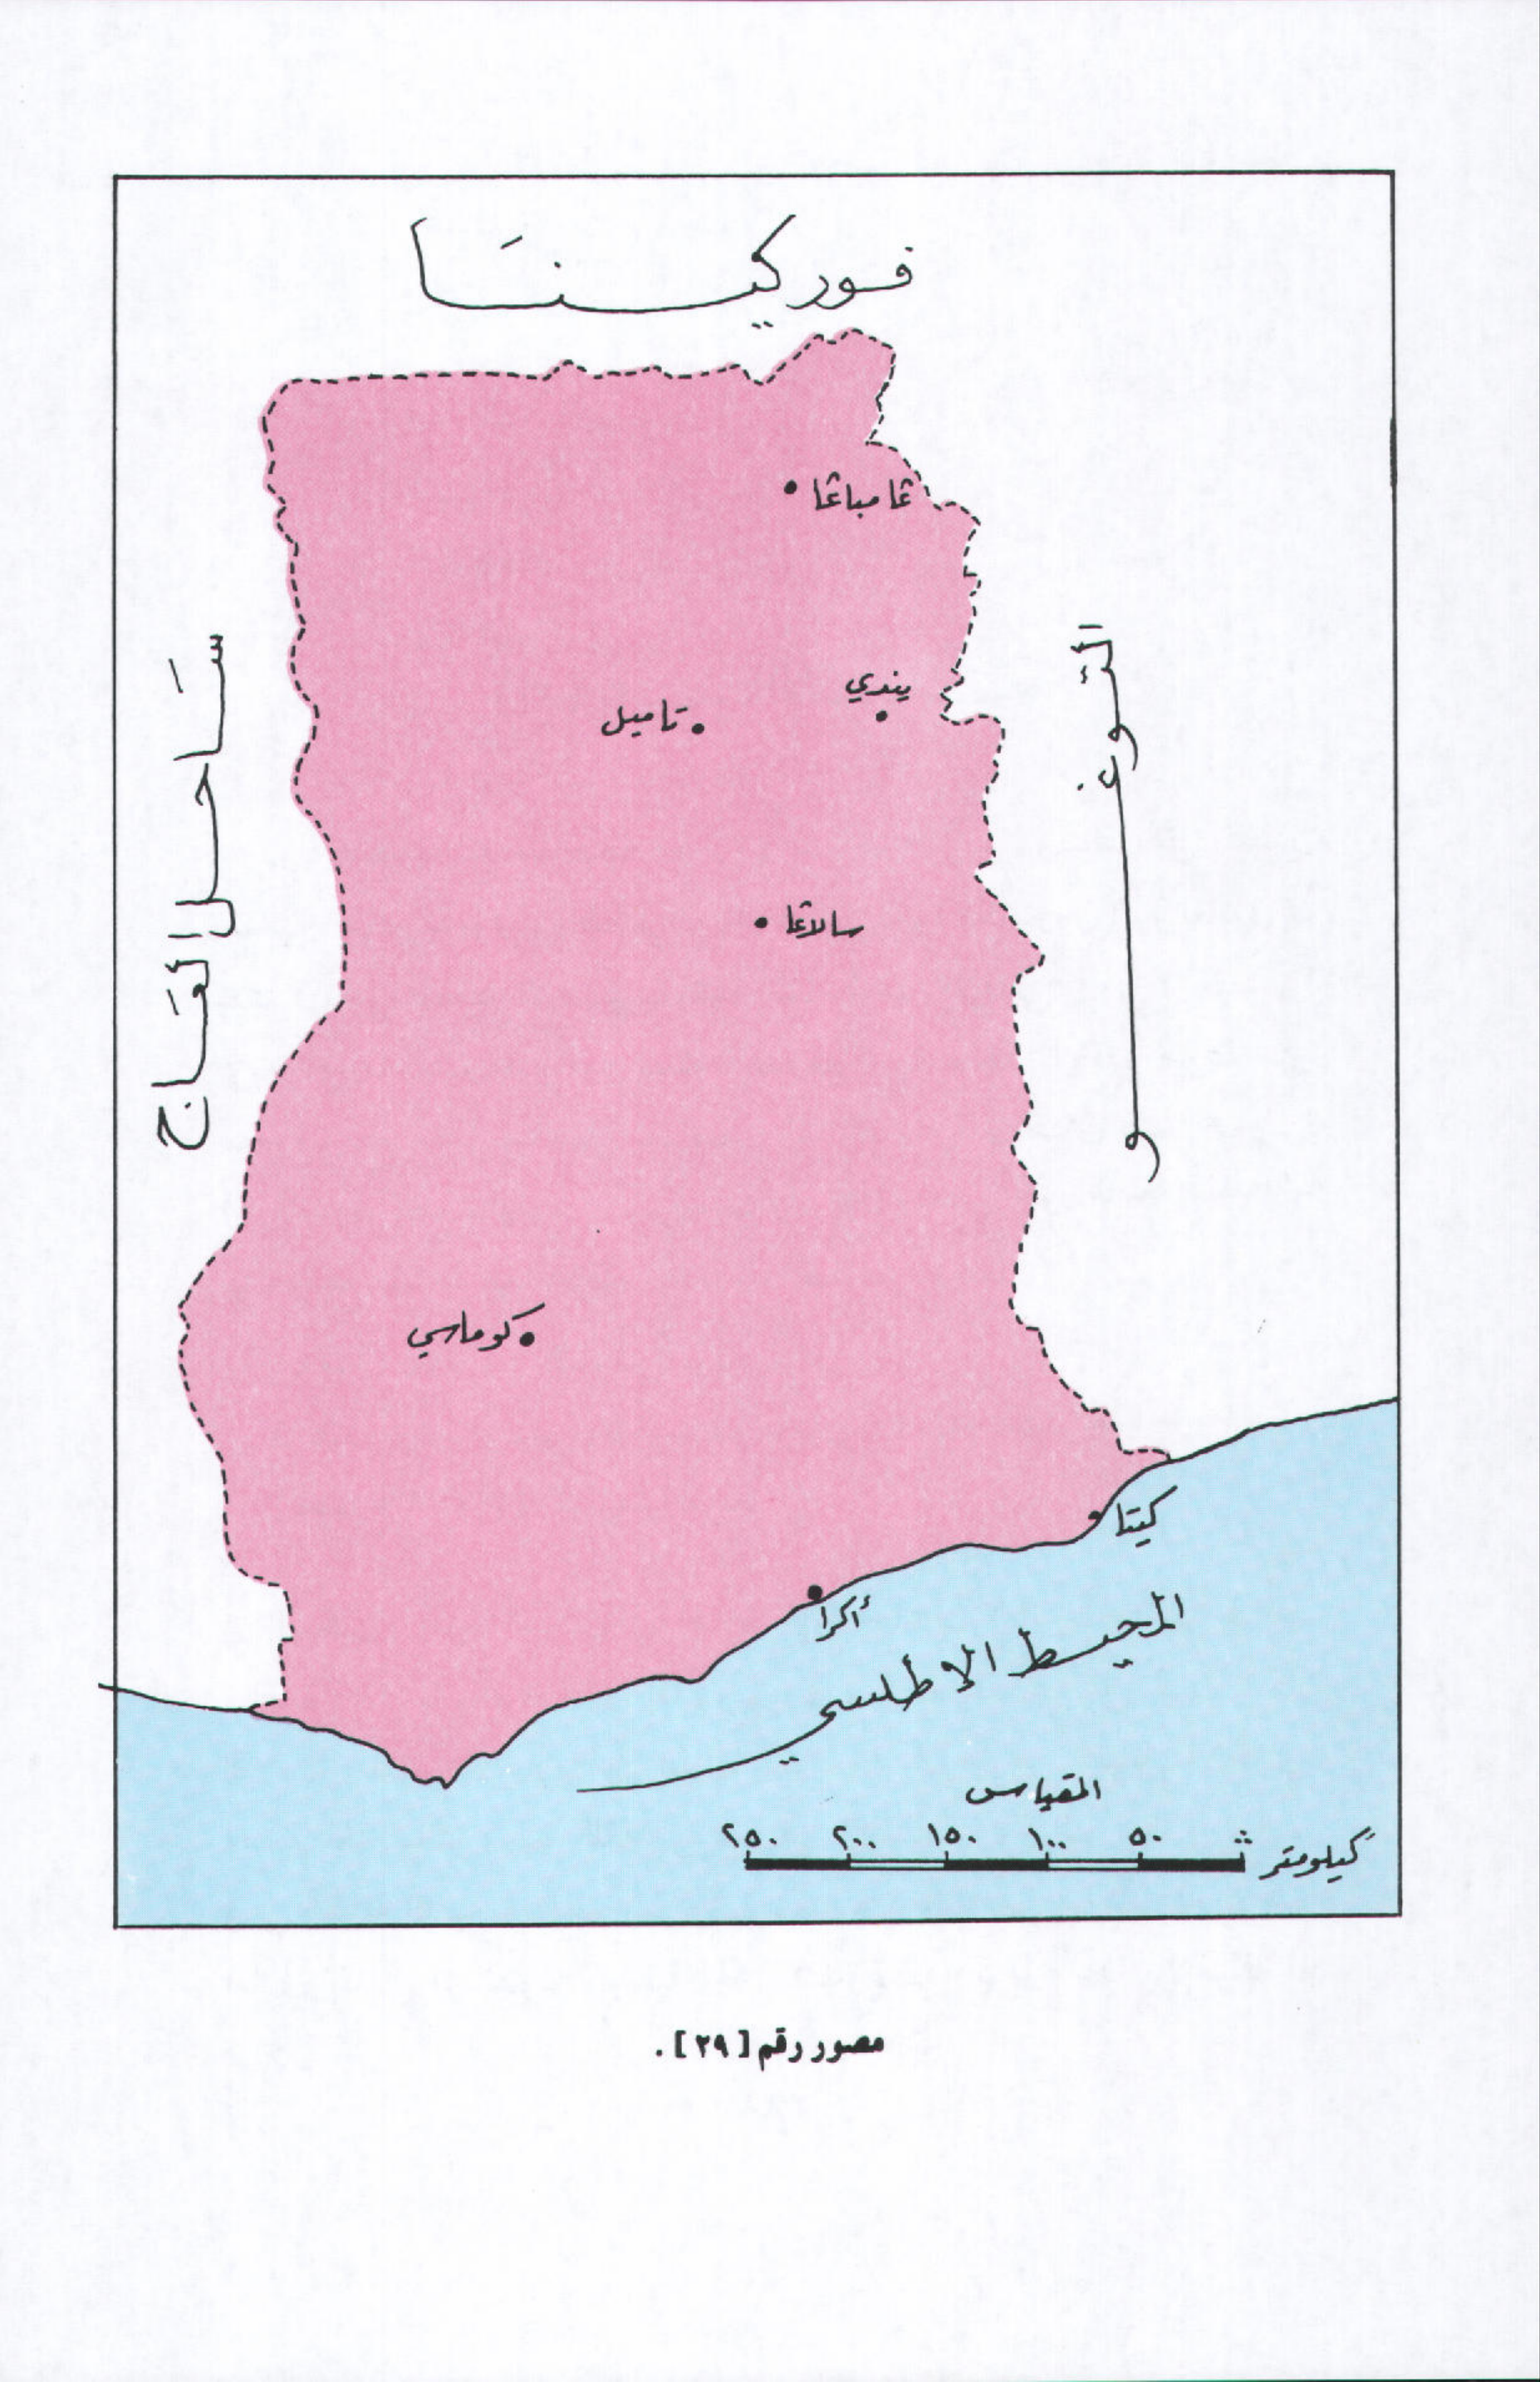 فوركينا
غامباغا
يندي
تاميل
سالاغا
ساحل العاج
التوغو
كوماسي
كيتا
أكرا
المحيط الاطلسي
المقياس
٢٥٠ ٢٠٠ ١٥٠ ١٠٠ ٥٠
كيلومتر
مصور رقم [٢٩] .